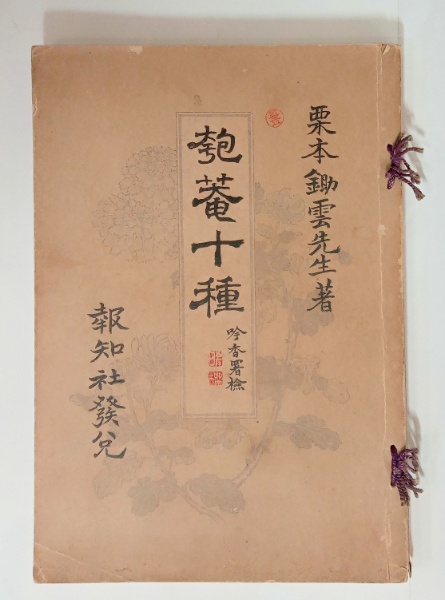 栗本鋤雲先生著
匏菴十種
吟香署檢
報知社發兌